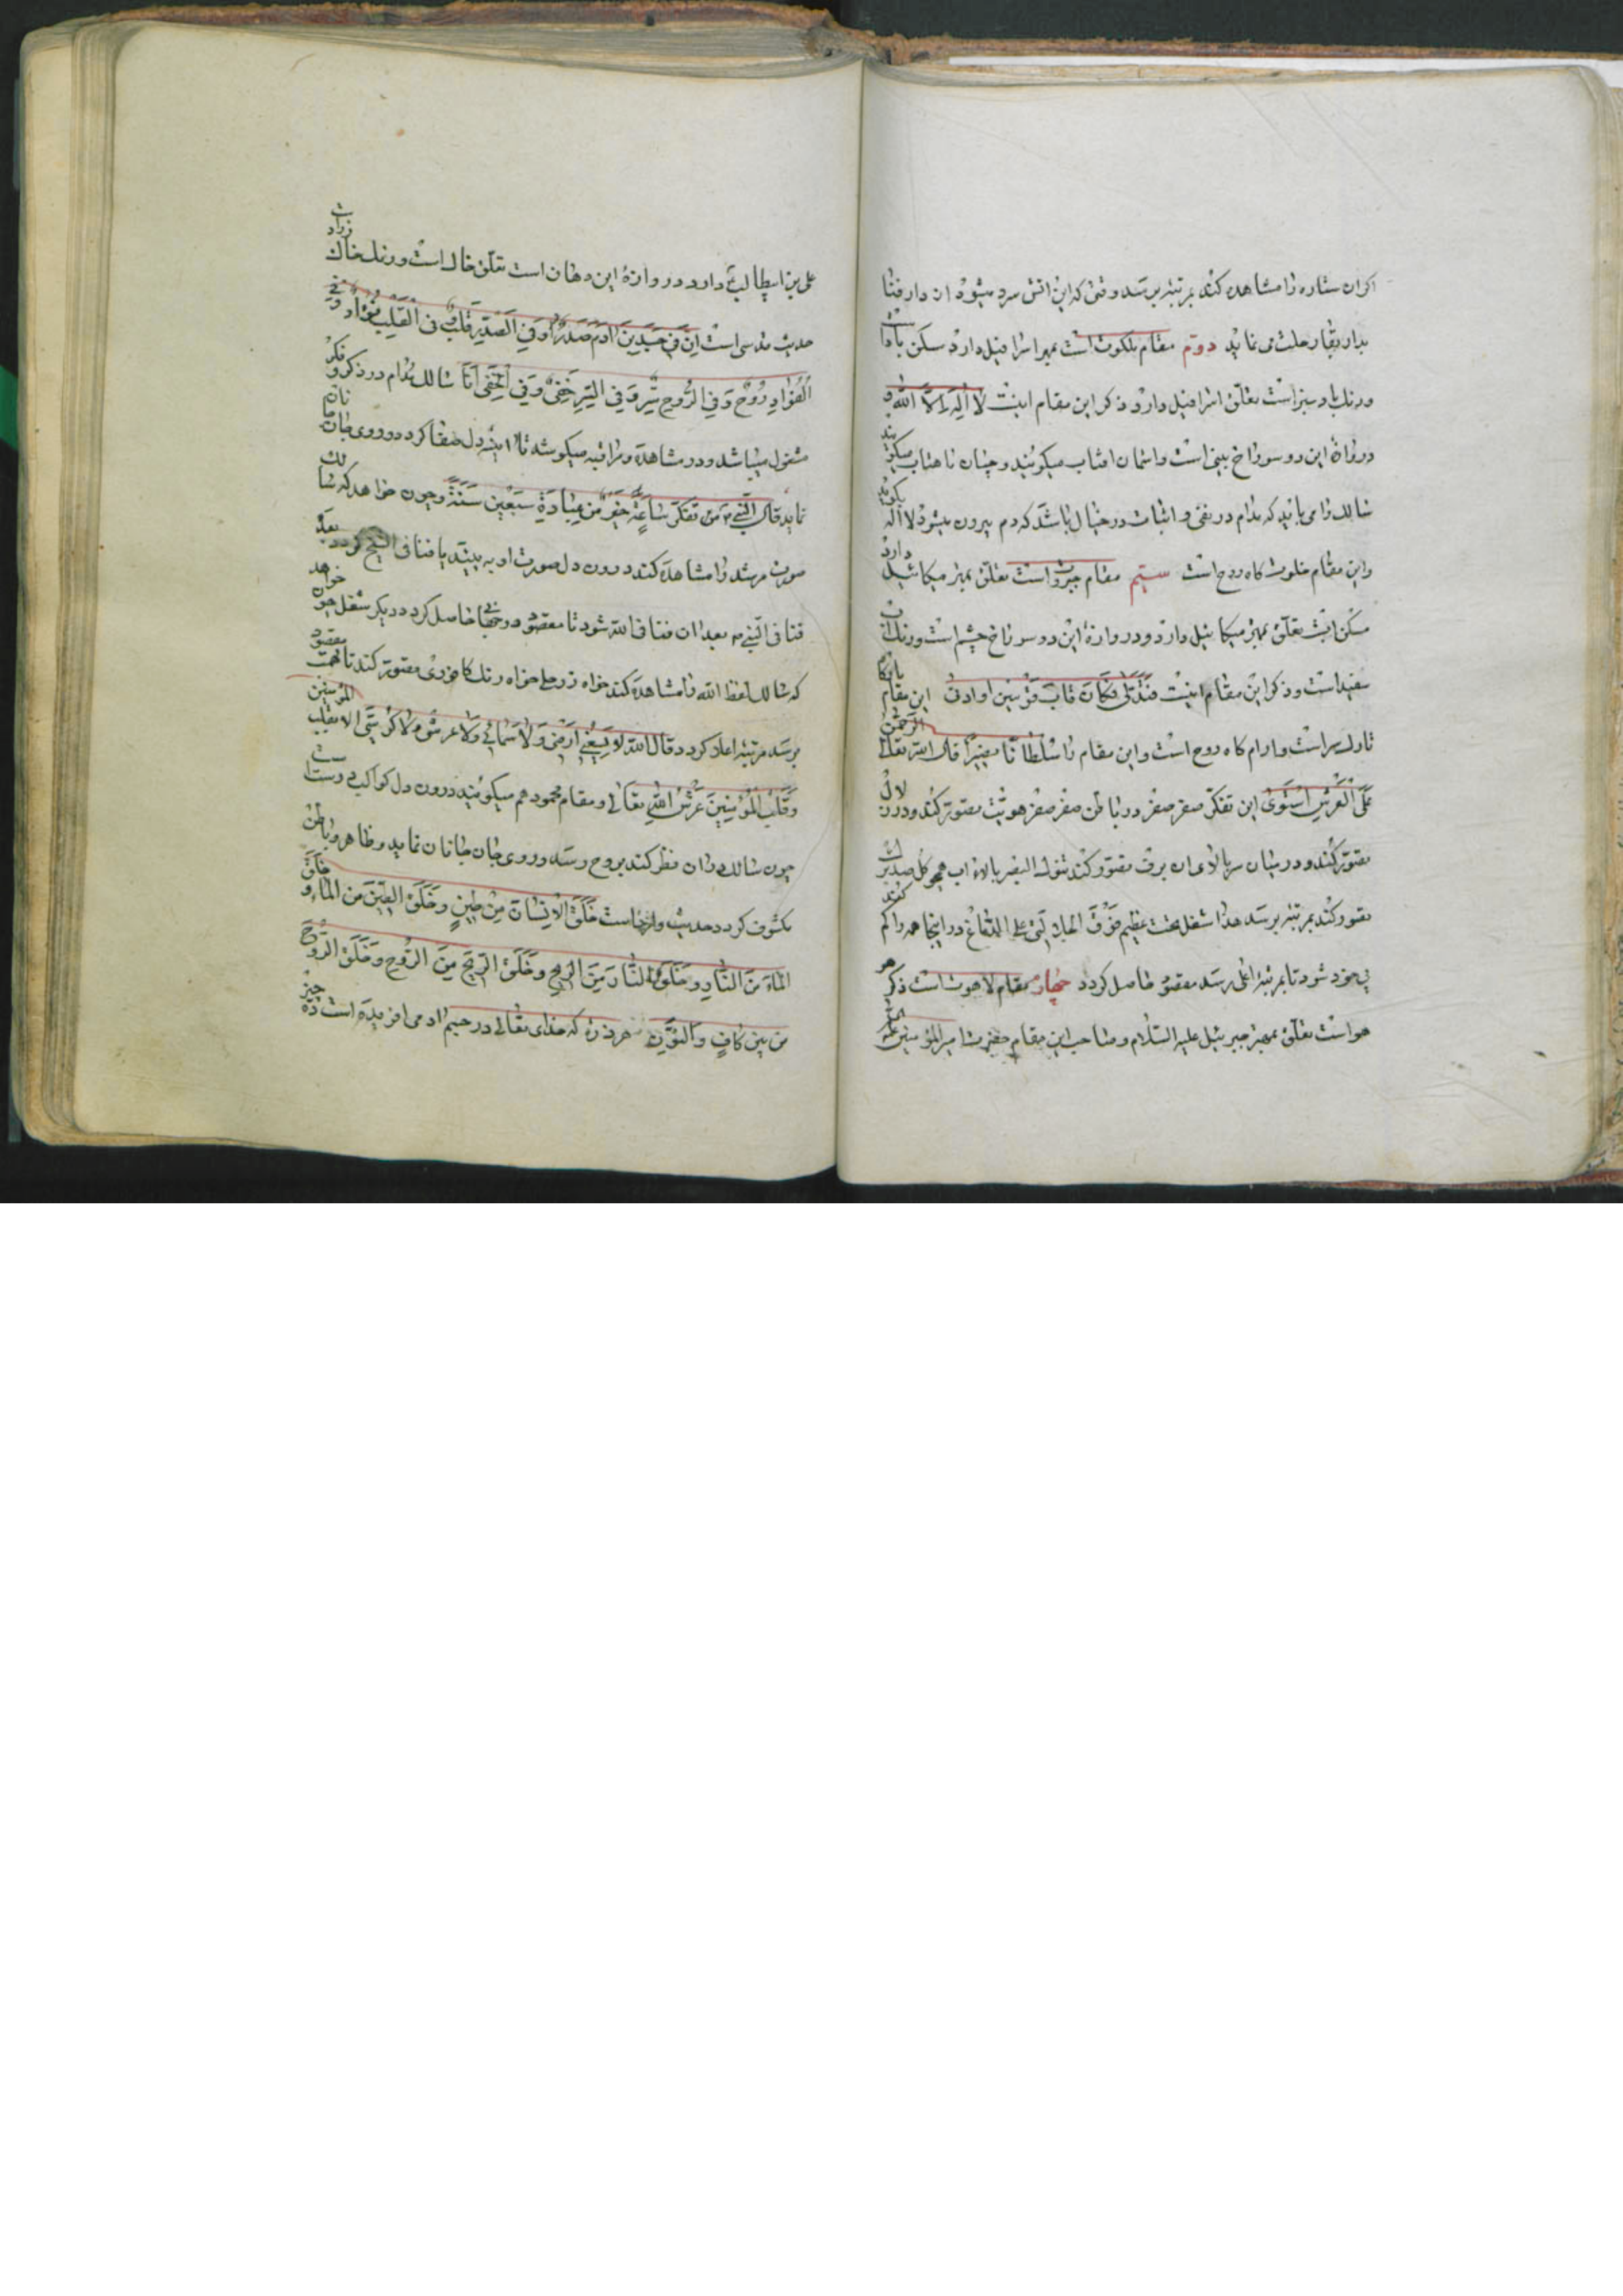 اکر ان ستاره را مشاهده کند بمرتبه برسد وقتی که این اتش سرد میشود از دار فنا
بدار بقا رحلت می نماید دوم مقام ملکوت است بمهتر اسرافیل دارد سکن باد است
ورنک باد سبز است تعلّق اسرافیل دارد و ذکر این مقام اینست لا اله الا الله و
دروازهٔ این دو سوراخ بینی است واسمان افتاب میکویند و چنان ماهتاب میکویند
سالک را می باید که مدام در نفی و اثبات در خیال باشد که دم بیرون میشود لا اله بکوید
واین مقام خلوت کاه روح است سیّم مقام جبروت است تعلّق بمهتر میکائیل دارد
مسکن تعلّق بمهتر میکائیل دارد و دروازهٔ این دو سوراخ چشم است ورنک
سفید است وذکر این مقام اینست فتدلی فکان قاب قوسین او ادنی این مقام
است وارام کاه روح است واین مقام را سلطانا نصیرا قال الله تعالی الرحمن
علی العرش استوی این تفکّر صفر صفر در باطن صفر صفر هویّت تصوّر کند ودرون
تصوّر کند و در میان سر بالای ان برف تصوّر کند بالاء اب همچو کل
تصوّر کند بمرتبه برسد هذا شغل تخت عظیم فوق علی الدماغ در اینجا همه را کم کند
بی خود شود تا بمرتبهٔ اعلی رسد مقصود حاصل کردد چهار مقام لاهوت است ذکر هو
هواست تعلّق بمهتر جبرئیل علیه السّلام وصاحب این مقام حضرت امیر المؤمنین
علی بن ابیطالب دارد دروازهٔ این دهان است تعلّق خاک است ورنک خاک زرد است
حدیث قدسی است انّ فی جسد بن ادم صدرا وفی الصّدر قلب و فی القلب فؤاد و فی
الفؤاد روح وفی الرّوح سرّ وفی السّر خفی وفی الخفی انا سالک مدام در ذکر و فکر
مشغول میباشد ودر مشاهده ومراقبه میکوشد تا ایینهٔ دل صفا کردد و روی جانان
نماید قال النّبی م من تفکّر ساعة خیر من عبادة سبعین سنة وچون خواهد که سالک
صورت مرشد را مشاهده کند درون دل صورت او به بیند یا فنا فی الشیخ کردد بعده
فنا فی النّبی م بعد ان فنا فی الله شود تا مقصود حاصل کردد دیکر شغل چون خواهد
که سالک لفظ الله را مشاهده کند خواه زر حل خواه رنک کافوری تصوّر کند تا مقصود
برسد مرتبهٔ اعلا کردد قال الله لا یسعنی ارضی ولا سمائی ولا عرشی ولا کرسی الا بقلب المؤمنین
وقلب المؤمنین عرش الله تعالی و مقام محمود هم میکویند درون دل کواکب است
چون سالک دران نظر کند بروح رسد وروی جان جانان نماید وظاهر وباطن
مکشوف کردد حدیث است خلق الانسان من طین وخلق الطین من الماء و خلق
الماء من النار وخلق النار من الریح وخلق الریح من الروح وخلق الروح
من بین کاف والنون هر ذره که خدای تعالی در جسم ادمی افریده است ده چیز